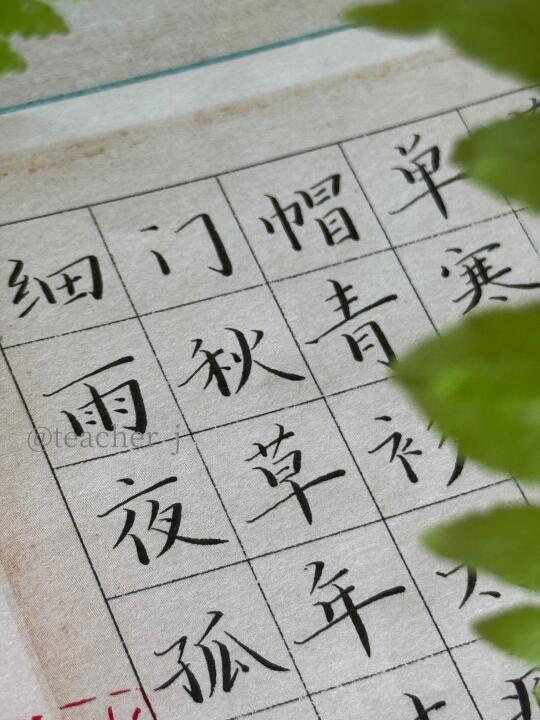 单寒
帽青衫
门秋草年
细雨夜孤
@teacher_j